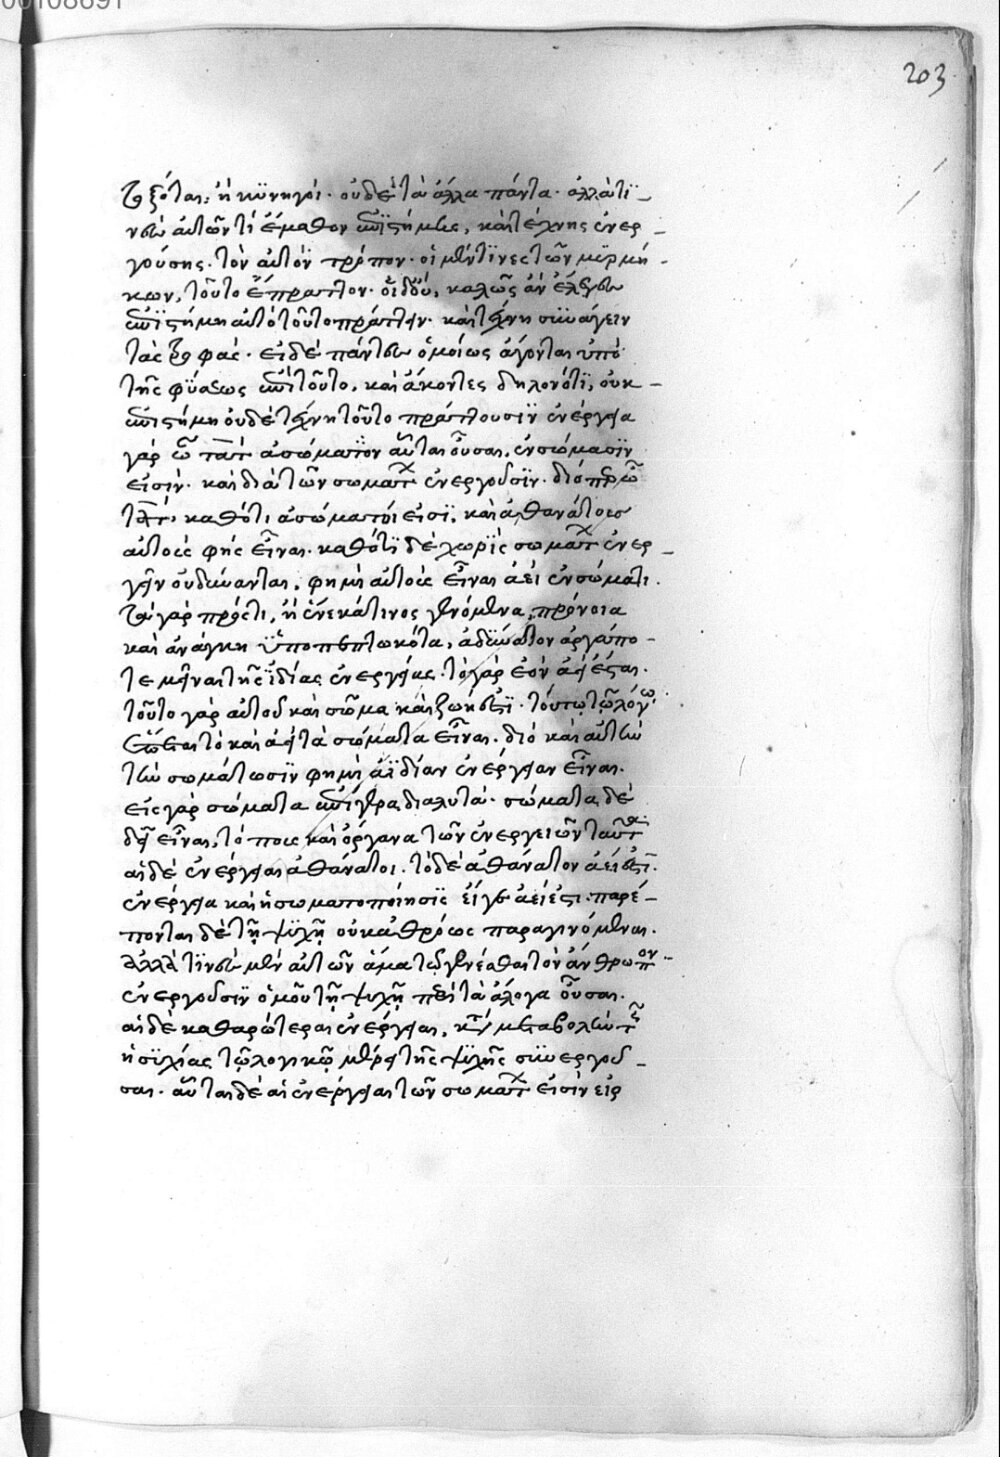 00108691
203
τοξόται· ἢ κϋνηγοί· οὐδὲ τὰ ἄλλα πάντα· ἀλλὰ τϊ-
νὲς αὐτῶν τί ἔμαθον ἐπϊστήμης, καὶ τέχνης ἐνερ-
γούσης. τὸν αὐτὸν τρόπον· οἱ μέν τϊνες τῶν μϋρμή-
κων, τοῦτο ἔπραττον· οἳ δ' οὔ, καλῶς ἂν ἔλεγες
ἐπϊστήμη αὐτὸ τοῦτο πράττειν· καὶ τέχνη συνάγειν
τὰς τροφάς· εἰ δὲ πάντες ὁμοίως ἄγονται ὑπὸ
τῆς φύσεως ἐπὶ τοῦτο, καὶ ἄκοντες δηλονότϊ, οὐκ-
ἐπιστήμη οὐδὲ τέχνη τοῦτο πράττουσϊν ἐνέργεια
γὰρ ὦ τὰτ ἀσώματοι αὗται οὖσαι, ἐν σώμασϊν
εἰσὶν· καὶ διὰ τῶν σωμάτ ἐνεργοῦσϊν· διόπερ ὦ
τὰτ, καθότι ἀσώματοί εἰσϊ, καὶ ἀθανάτους
αὐτοὺς φὴς εἶναι· καθότϊ δὲ χωρὶς σωμάτ ἐνερ-
γεῖν οὐ δύνανται, φημὶ αὐτοὺς εἶναι ἀεὶ ἐν σώματι.
τὰ γὰρ πρός τι, ἢ ἕνεκά τινος γενόμενα, προνοία
καὶ ἀνάγκη ὑποπεπτωκότα, ἀδύνατον ἀργά πο-
τε μεῖναι τῆς ἰδίας ἐνεργείας· τὸ γὰρ ἐὸν ἀεὶ ἔσται.
τοῦτο γὰρ αὐτοῦ καὶ σῶμα καὶ ζωή ἐστϊ· τούτω τῶ λόγω
ἕπεται τὸ καὶ ἀεὶ τὰ σώματα εἶναι. διὸ καὶ αὐτὴν
τὴν σωμάτωσϊν φημὶ ἀΐδιαν ἐνέργειαν εἶναι.
εἰ γὰρ σώματα ἐπίγεια διαλυτά· σώματα δὲ
δεῖ εἶναι, τόπους καὶ ὄργανα τῶν ἐνεργειῶν ταῦτ
αἱ δὲ ἐνέργειαι ἀθάνατοι. τὸ δὲ ἀθάνατον ἀεί ἐστϊ.
ἐνέργεια καὶ ἡ σωματοποίησϊς εἴγε ἀεί ἐστι· παρέ-
πονται δὲ τῇ ψϋχῇ οὐκ ἀθρόως παραγινόμεναι.
ἀλλὰ τϊνὲς μὲν αὐτῶν ἅμα τῷ γενέσθαι τὸν ἄνθρωπον-
ἐνεργοῦσϊν ὁμοῦ τῇ ψυχῇ περὶ τὰ ἄλογα οὖσαι.
αἱ δὲ καθαρώτεραι ἐνέργειαι, κατὰ μεταβολὴν τῆς
ἡλϊκίας τῶ λογικῶ μέρει τῆς ψϋχῆς συνεργοῦ-
σαι. αὗται δὲ αἱ ἐνέργειαι τῶν σωμάτ εἰσὶν εἰρ